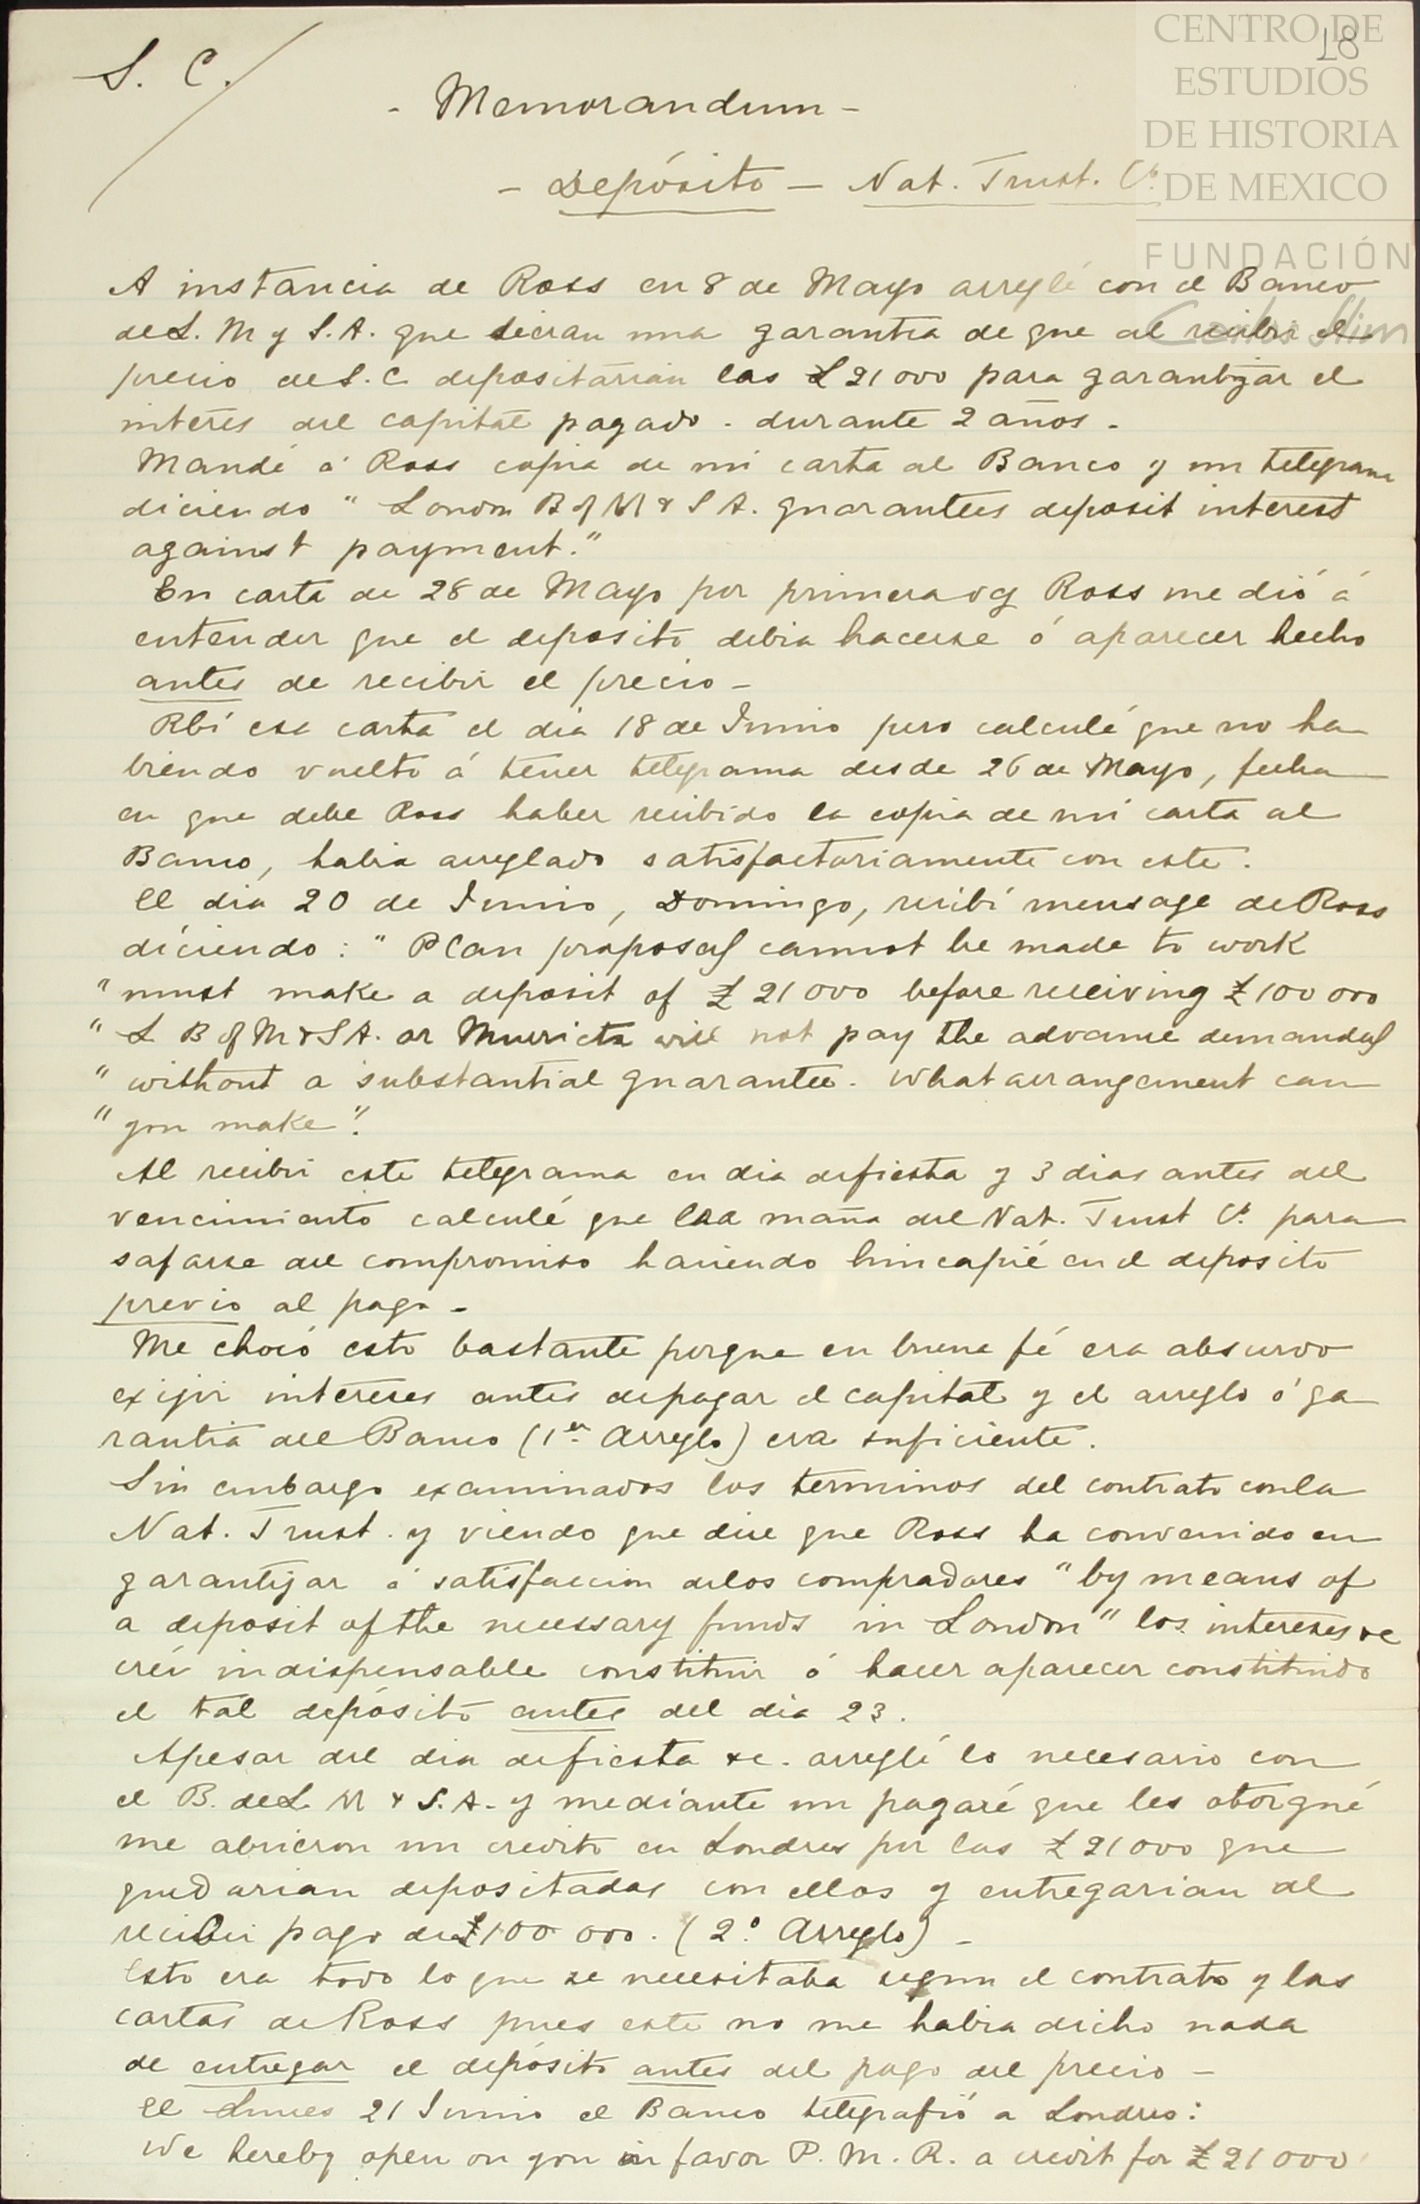 S. C.
18
CENTRO DE
ESTUDIOS
DE HISTORIA
DE MEXICO
FUNDACIÓN
Carlos Slim
- Memorandum -
- Depósito - Nat. Trust. Cº
A instancia de Ross en 8 de Mayo arreglé con el Banco
de L. M y S. A. que dieran una garantía de que al recibir el
precio de S. C depositarian las £ 21000 para garantizar el
interes del capital pagado . durante 2 años .
Mandé á Ross copia de mi carta al Banco y un telegrama
diciendo " London B of M & S A. guarantees deposit interest
against payment."
En carta de 28 de Mayo por primera vez Ross me dió á
entender que el deposito debia hacerse ó aparecer hecho
antes de recibir el precio -
Rbí esa carta el dia 18 de Junio pero calculé que no ha
biendo vuelto á tener telegrama desde 26 de Mayo, fecha
en que debe Ross haber recibido la copia de mi carta al
Banco, habia arreglado satisfactoriamente con este .
El dia 20 de Junio, Domingo, recibí mensage de Ross
diciendo : " Plan proposed cannot be made to work
" must make a deposit of £ 21000 before receiving £ 100 000
" L B of M & S A. or Murrieta will not pay the advance demanded
" without a substantial guarantee . What arrangement can
" you make ".
Al recibir este telegrama en dia de fiesta y 3 dias antes del
vencimiento calculé que era maña del Nat. Trust Cº para
safarse del compromiso haciendo hincapié en el deposito
previo al pago -
Me chocó esto bastante porque en buena fé era absurdo
exijir intereses antes de pagar el capital y el arreglo ó ga
rantia del Banco (1er Arreglo) era suficiente .
Sin embargo examinados los terminos del contrato con la
Nat. Trust . y viendo que dice que Ross ha convenido en
garantizar á satisfaccion de los compradores " by means of
a deposit of the necessary funds in London " los intereses &c
creí indispensable constituir ó hacer aparecer constituido
el tal depósito antes del dia 23 .
Apesar del dia de fiesta &c . arreglé lo necesario con
el B. de L. M & S. A. y mediante un pagaré que les otorgué
me abrieron un credito en Londres por las £ 21000 que
quedarian depositadas con ellos y entregarian al
recibir pago de £ 100 000 . (2º Arreglo) -
Esto era todo lo que se necesitaba segun el contrato y las
cartas de Ross pues este no me habia dicho nada
de entregar el depósito antes del pago del precio -
El Lunes 21 Junio el Banco telegrafió a Londres :
We hereby open on you in favor P. M. R. a credit for £ 21000